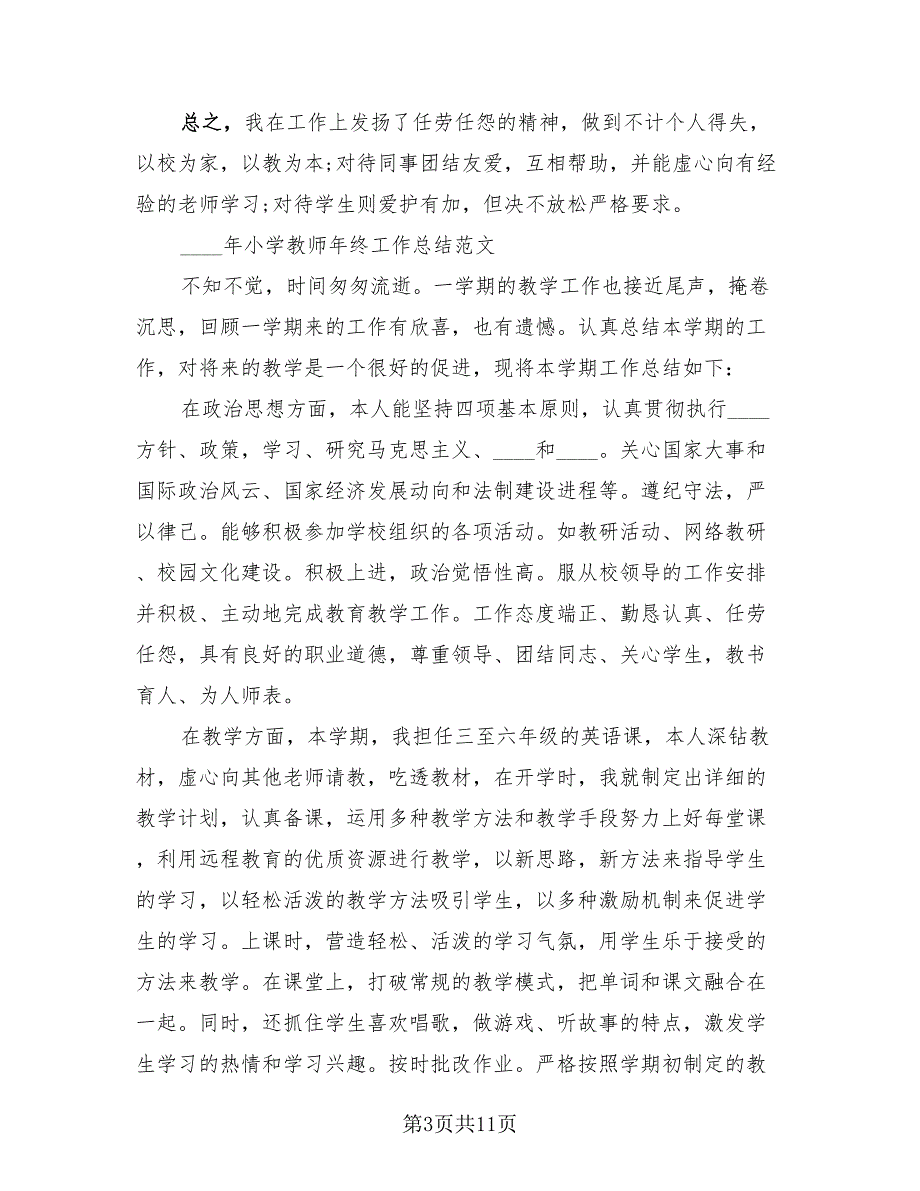 总之，我在工作上发扬了任劳任怨的精神，做到不计个人得失，
以校为家，以教为本;对待同事团结友爱，互相帮助，并能虚心向有经
验的老师学习;对待学生则爱护有加，但决不放松严格要求。
____年小学教师年终工作总结范文
不知不觉，时间匆匆流逝。一学期的教学工作也接近尾声，掩卷
沉思，回顾一学期来的工作有欣喜，也有遗憾。认真总结本学期的工
作，对将来的教学是一个很好的促进，现将本学期工作总结如下：
在政治思想方面，本人能坚持四项基本原则，认真贯彻执行____
方针、政策，学习、研究马克思主义、____和____。关心国家大事和
国际政治风云、国家经济发展动向和法制建设进程等。遵纪守法，严
以律己。能够积极参加学校组织的各项活动。如教研活动、网络教研
、校园文化建设。积极上进，政治觉悟性高。服从校领导的工作安排
并积极、主动地完成教育教学工作。工作态度端正、勤恳认真、任劳
任怨，具有良好的职业道德，尊重领导、团结同志、关心学生，教书
育人、为人师表。
在教学方面，本学期，我担任三至六年级的英语课，本人深钻教
材，虚心向其他老师请教，吃透教材，在开学时，我就制定出详细的
教学计划，认真备课，运用多种教学方法和教学手段努力上好每堂课
，利用远程教育的优质资源进行教学，以新思路，新方法来指导学生
的学习，以轻松活泼的教学方法吸引学生，以多种激励机制来促进学
生的学习。上课时，营造轻松、活泼的学习气氛，用学生乐于接受的
方法来教学。在课堂上，打破常规的教学模式，把单词和课文融合在
一起。同时，还抓住学生喜欢唱歌，做游戏、听故事的特点，激发学
生学习的热情和学习兴趣。按时批改作业。严格按照学期初制定的教
第3页共11页